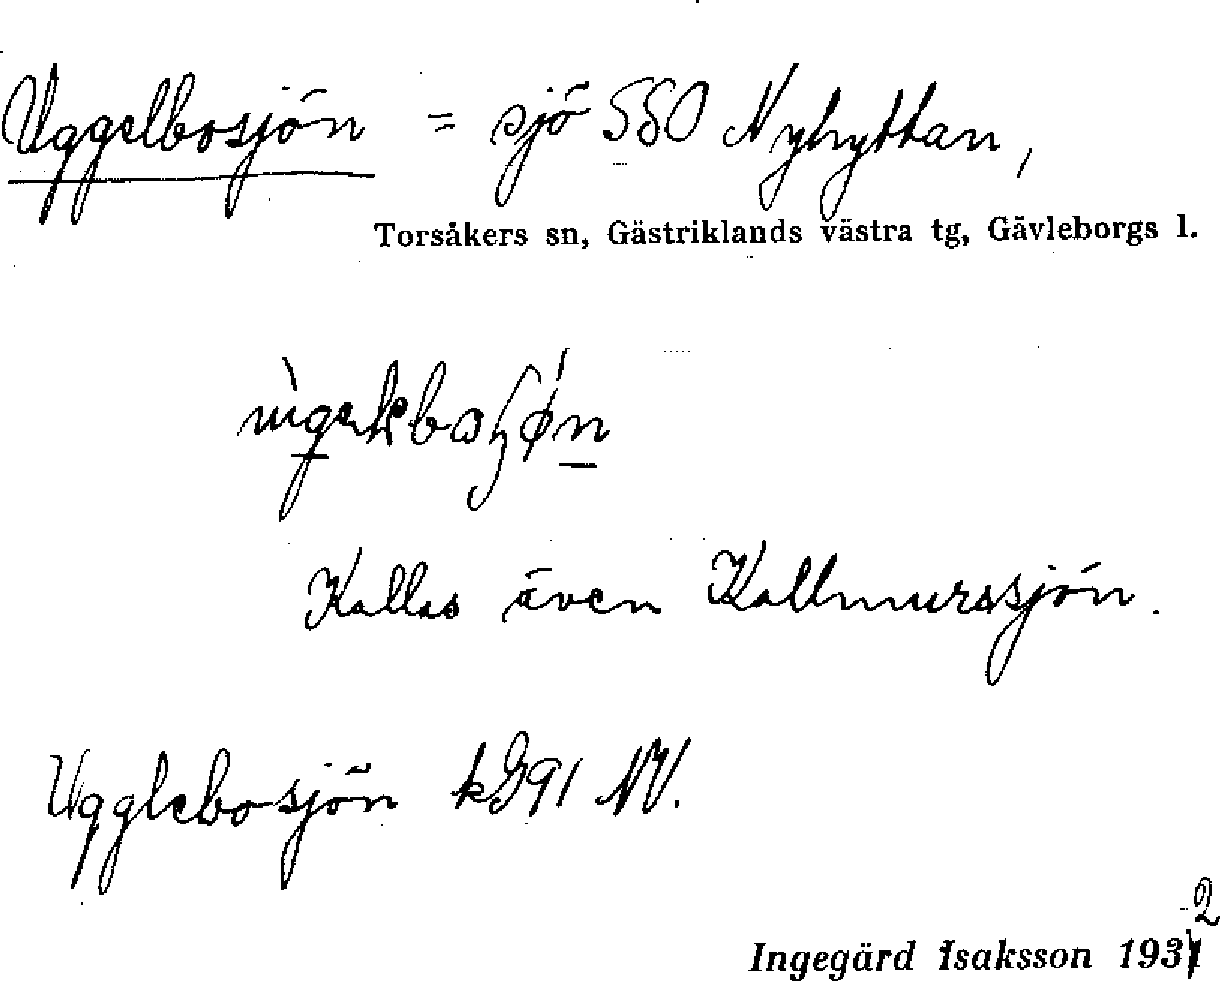 Uggelbosjön = sjö SSO Nyhyttan,
Torsåkers sn, Gästriklands västra tg, Gävleborgs l.
Kallas även Kallmurssjön.
Ugglebosjön kG91 NV.
2
Ingegärd Isaksson 1931